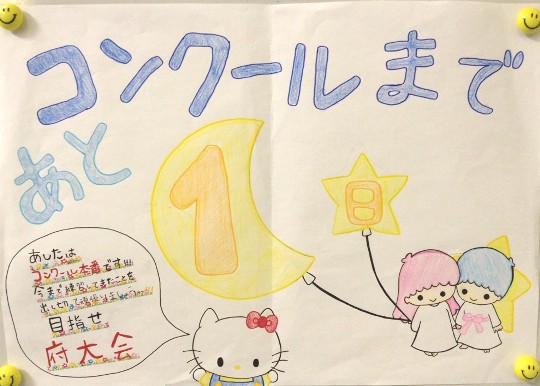 コンクールまで
あと
1
日
あしたは
コンクール本番です!!!
今まで練習してきたことを
出し切って頑張りましょう
目指せ
府大会